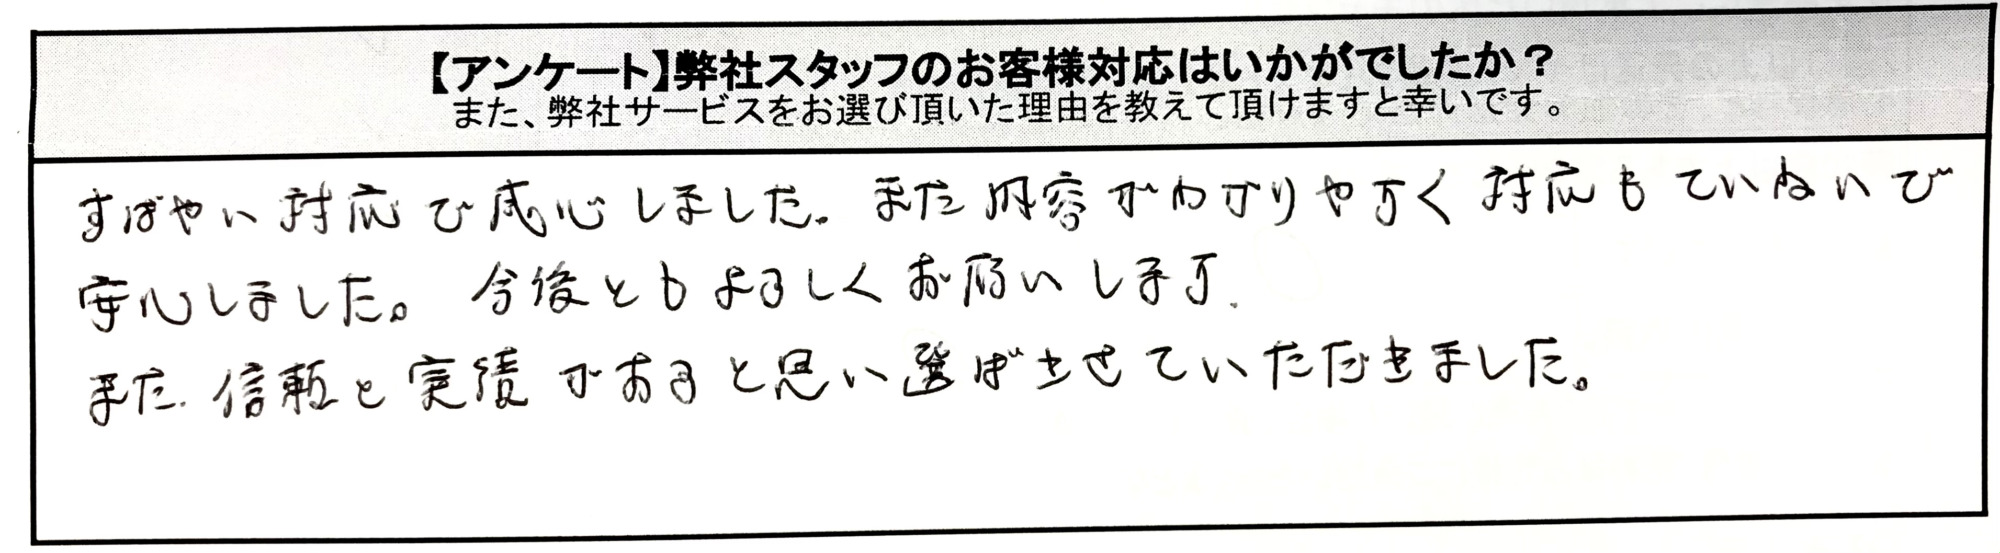 【アンケート】弊社スタッフのお客様対応はいかがでしたか？
また、弊社サービスをお選び頂いた理由を教えて頂けますと幸いです。
すばやい対応で感心しました。また内容がわかりやすく対応もていねいで
安心しました。今後ともよろしくお願いします.
また.信頼と実績があると思い選ばさせていただきました。